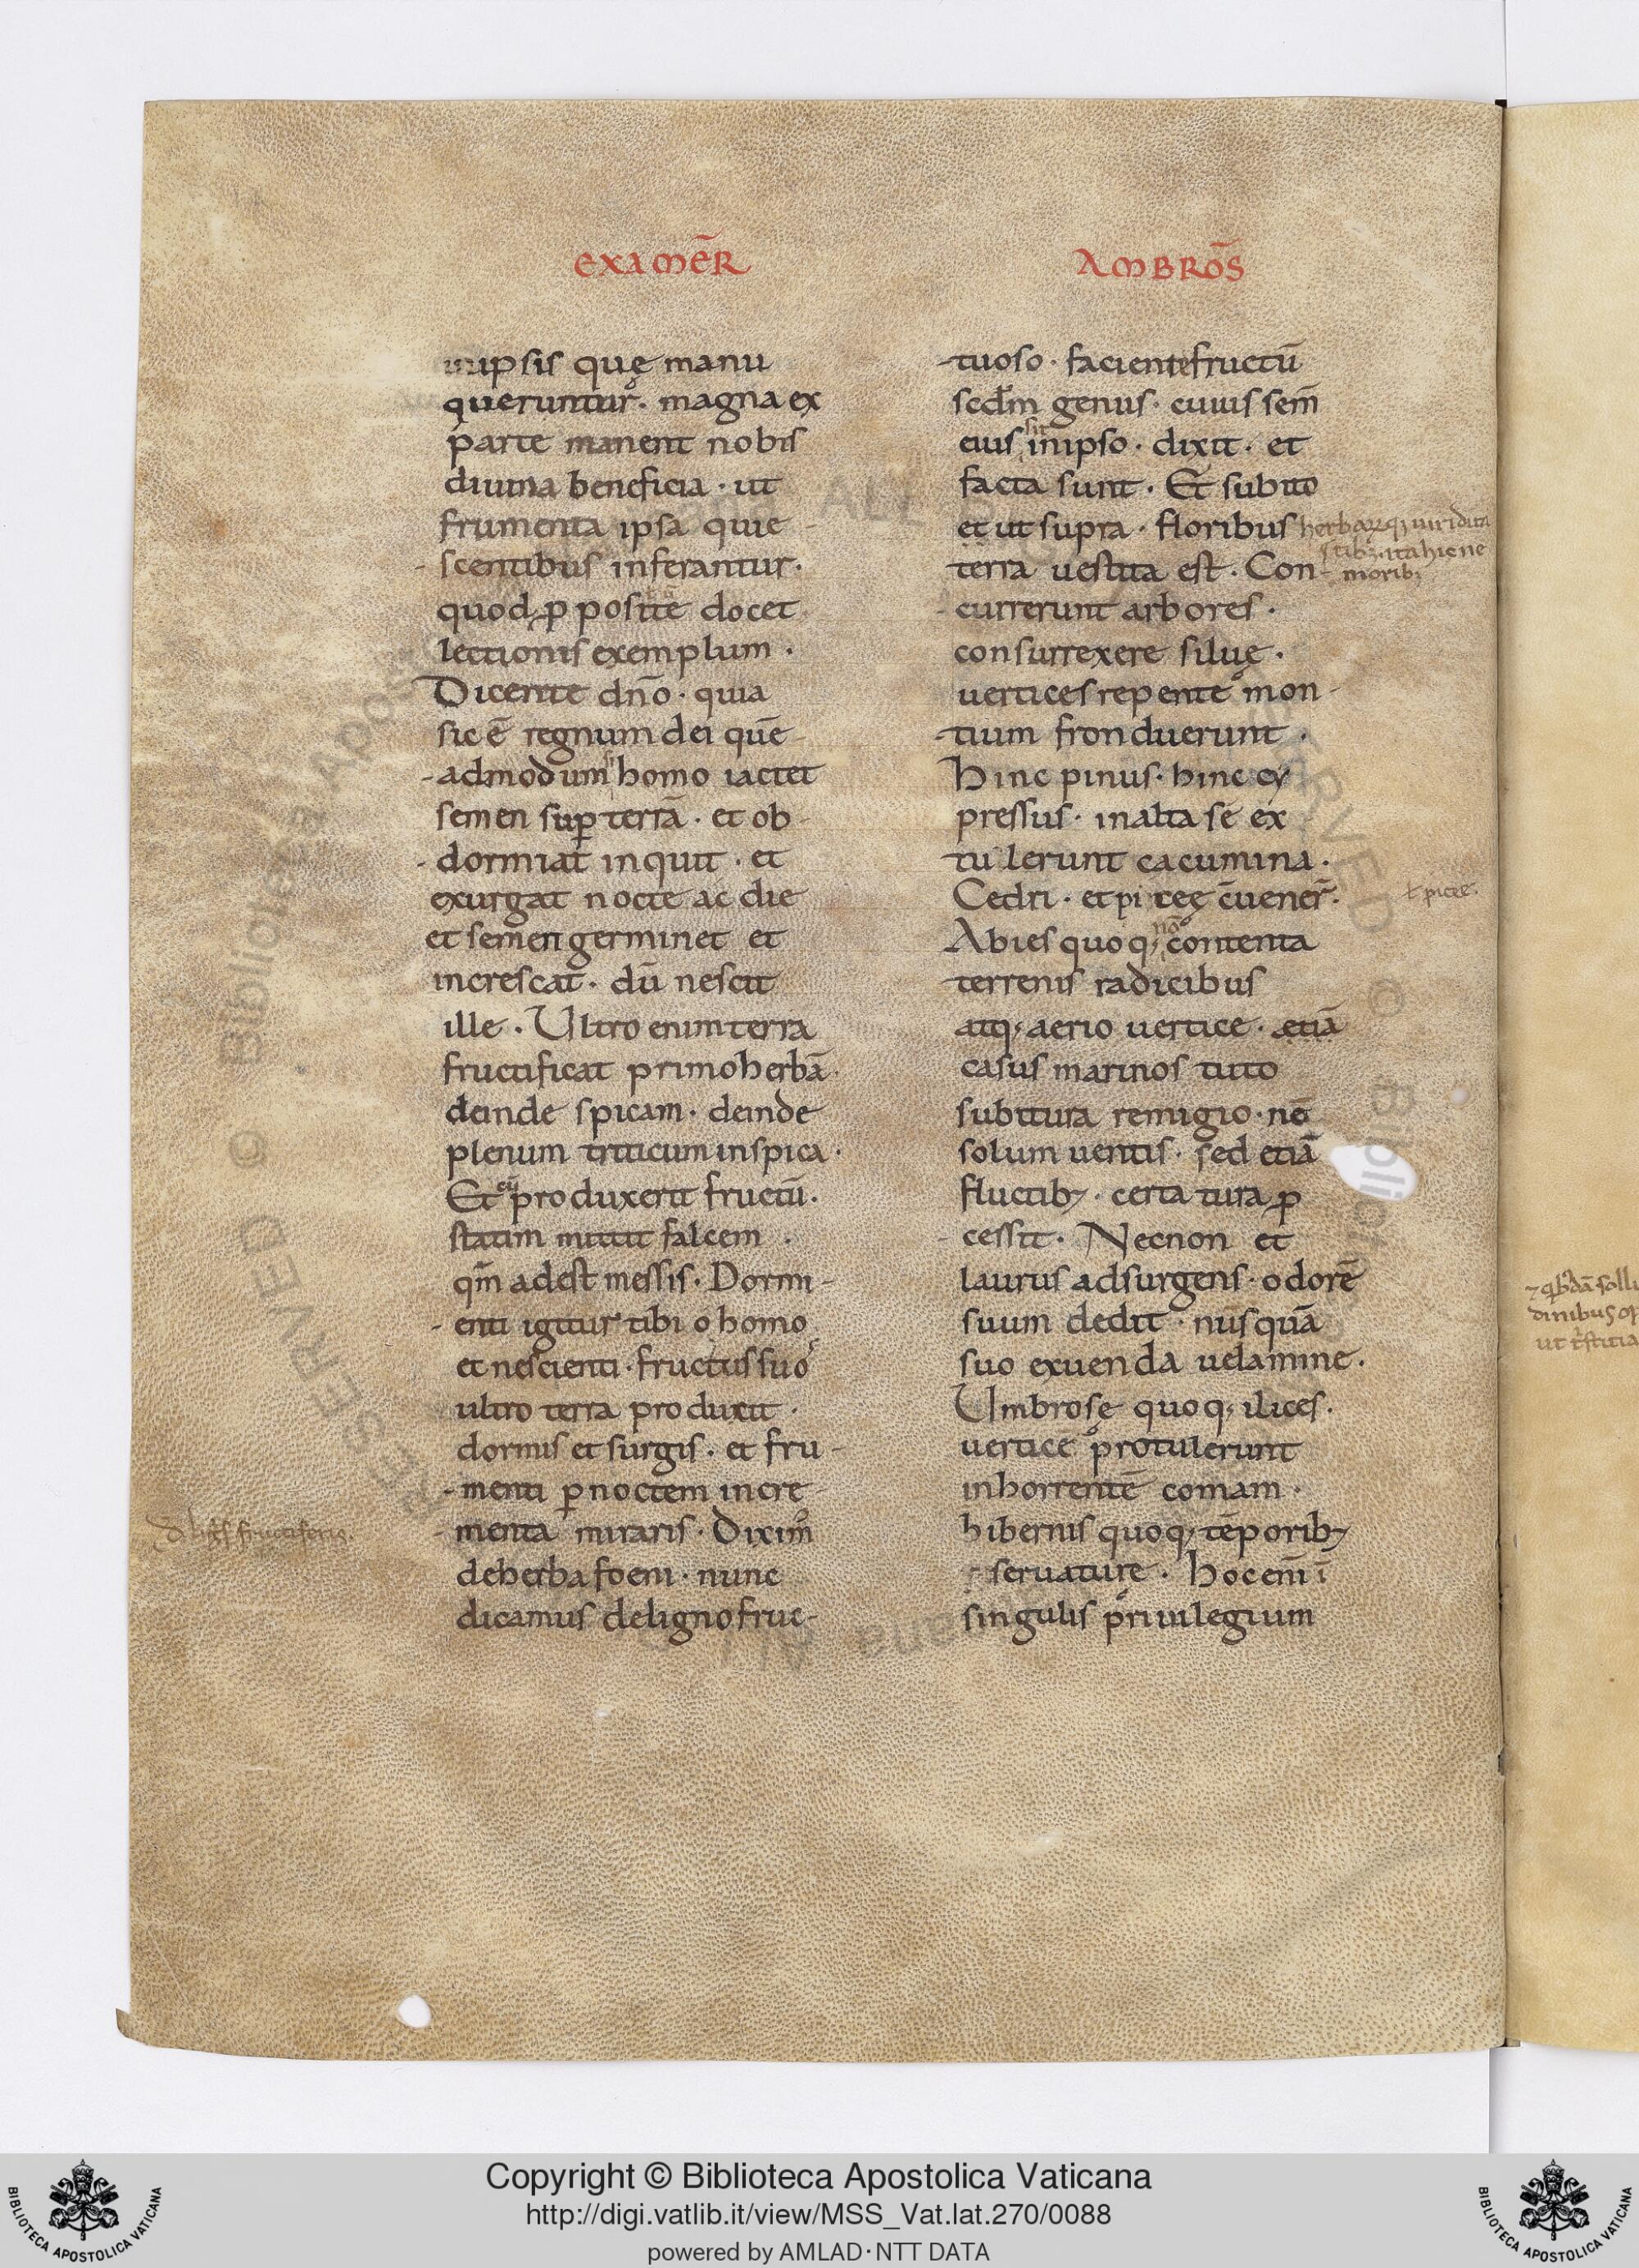 EXAMER̄
in ipsis quę manu
queruntur. magna ex
parte manent nobis
diuina beneficia. ut
frumenta ipsa quie-
-scentibus inferantur.
quod ꝓposite docet
lectionis exemplum.
Dicente dn̄o. quia
sic ē regnum dei quē-
-admodum si homo iactet
semen suꝑ terrā. et ob-
-dormiat inquit. et
exurgat nocte ac die
et semen germinet et
increscat. dū nescit
ille. Ultro enim terra
fructificat primo herbā.
deinde spicam. deinde
plenum triticum in spica.
Et cū produxerit fructū.
statim mittit falcem.
qm̄ adest messis. Dormi-
-enti igitur tibi o homo
et nescienti. fructus suos
ultro terra producit.
dormis et surgis. et fru-
-menti ꝑ noctem incre-
-menta miraris. Diximus
de herba foeni. nunc
dicamus de ligno fruc-
AMBROS̄
-tuoso. faciente fructū
scdm̄ genus. cuius sem̄
eius sit in ipso. dixit. et
facta sunt. Et subito
et ut supra. floribus
terra uestita est. Con-
-currerunt arbores.
consurrexere siluę.
uertices repente mon-
-tium fronduerunt.
Hinc pinus. hinc cy
pressus. in alta se ex
tulerunt cacumina.
Cedri. et piceę c̄uener̄.
Abies quoq; nō contenta
terrenis radicibus
atq; aerio uertice. etiā
casus marinos tuto
subitura remigio. nō
solum uentis. sed etiā
fluctib; certatura ꝓ
cessit. Necnon et
laurus adsurgens. odorē
suum dedit. nūsquā
suo exuenda uelamine.
Umbrose quoq; ilices.
uertice protulerunt
inhorrentē comam.
hibernis quoq; tēporib;
seruature. Hoc enī ī
singulis priuilegium
herbarꝝq; uiridita
stib;. ita hic ne
morib;
ł picee.